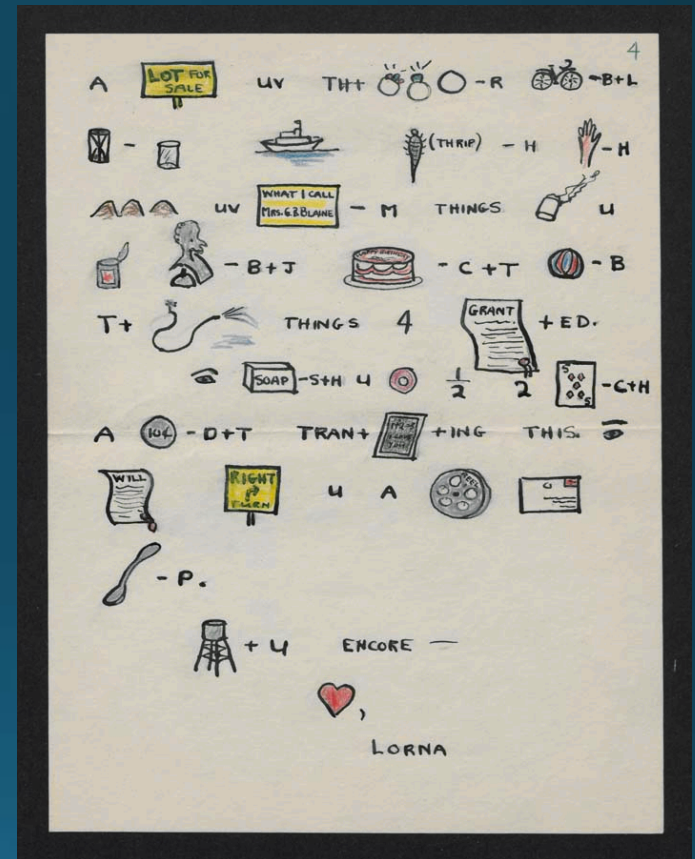 4
A LOT FOR SALE UV TH+ -R -B+L
- (THRIP) - H - H
UV WHAT I CALL MRS. G.B.BLAINE - M THINGS U
- B+J HAPPY BIRTHDAY - C +T - B
T+ THINGS 4 GRANT + ED.
SOAP -S+H U 1/2 2 5 5 -C+H
A 10¢ - D+T TRAN+ +ING THIS.
WILL RIGHT TURN U A REEL
- P.
+ U ENCORE —
,
LORNA